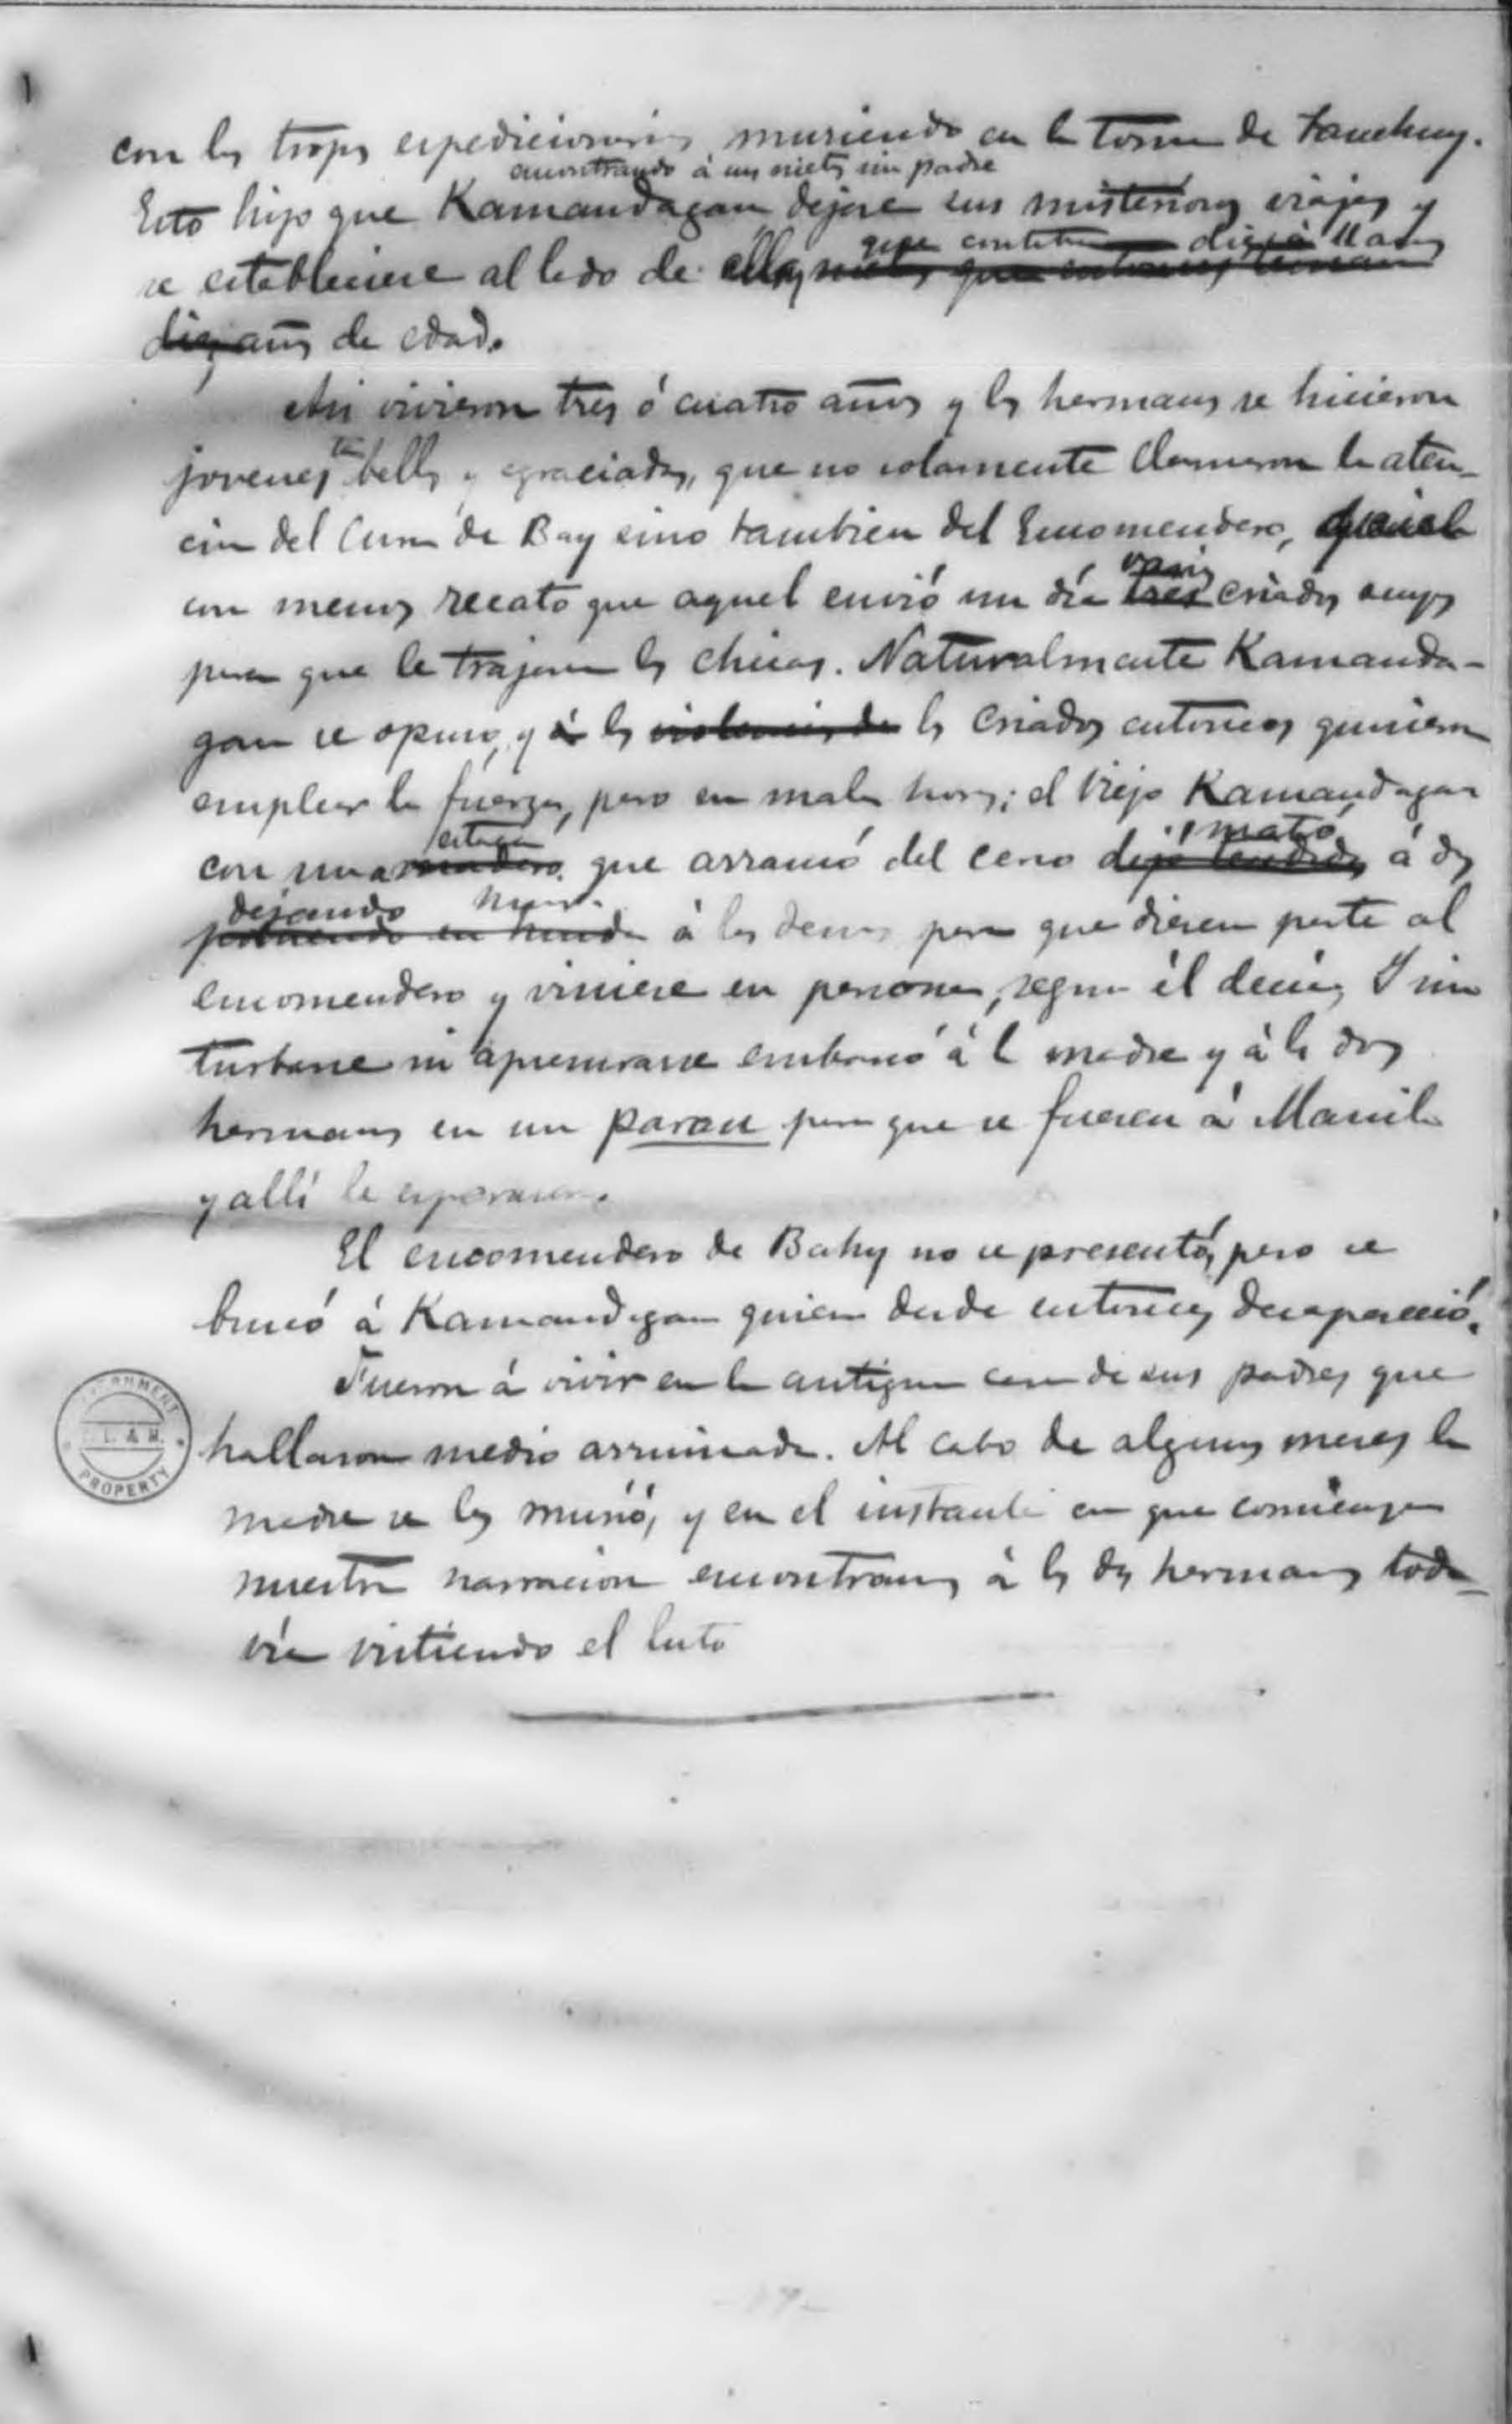 con las tropas expedicionarias muriendo en la toma de Tanchuy.
encontrando á sus nietas sin padre
Esto hizo que Kamandagan dejase sus misteriosos viajes y
que contaban diez á 11 años
se estableciese al lado de ellas, nietas que entonces tenian
diez años de edad.
Asi vivieron tres ó cuatro años y las hermanas se hicieron
tan
jovenes bellas y agraciadas, que no solamente llamaron la aten-
cion del Cura de Bay sino tambien del Encomendero, el cual
varios
con menos recato que aquel envió un dia tres criados suyos
para que le trajeran las chicas. Naturalmente Kamanda-
gan se opuso, y á las violencias de los criados entonces quisieron
emplear la fuerza, pero en mala hora; el viejo Kamandagan
estaca mató
con un madero que arrancó del cerco dejó tendidos á dos
dejando huir
poniendo en huida á los demas para que diesen parte al
encomendero y viniese en persona, segun él decia, I sin
turbarse ni apresurarse embarcó á la madre y á las dos
hermanas en un parau para que se fuesen á Manila
y alli le esperasen.
El encomendero de Bahy no se presentó, pero se
buscó á Kamandagan quien desde entonces desapareció.
Fueron á vivir en la antigua casa de sus padres que
hallaron medio arruinada. Al cabo de algunos meses la
madre se les murió, y en el instante en que comienza
nuestra narracion encontramos á las dos hermanas toda-
via vistiendo el luto
GOVERNMENT
L. & M.
PROPERTY